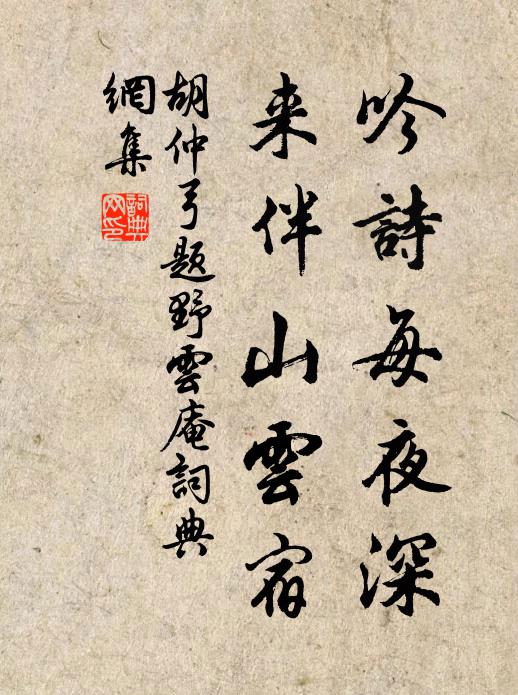 吟詩每夜深
来伴山雲宿
胡仲弓題野雲庵詞典
網集
詞典网印